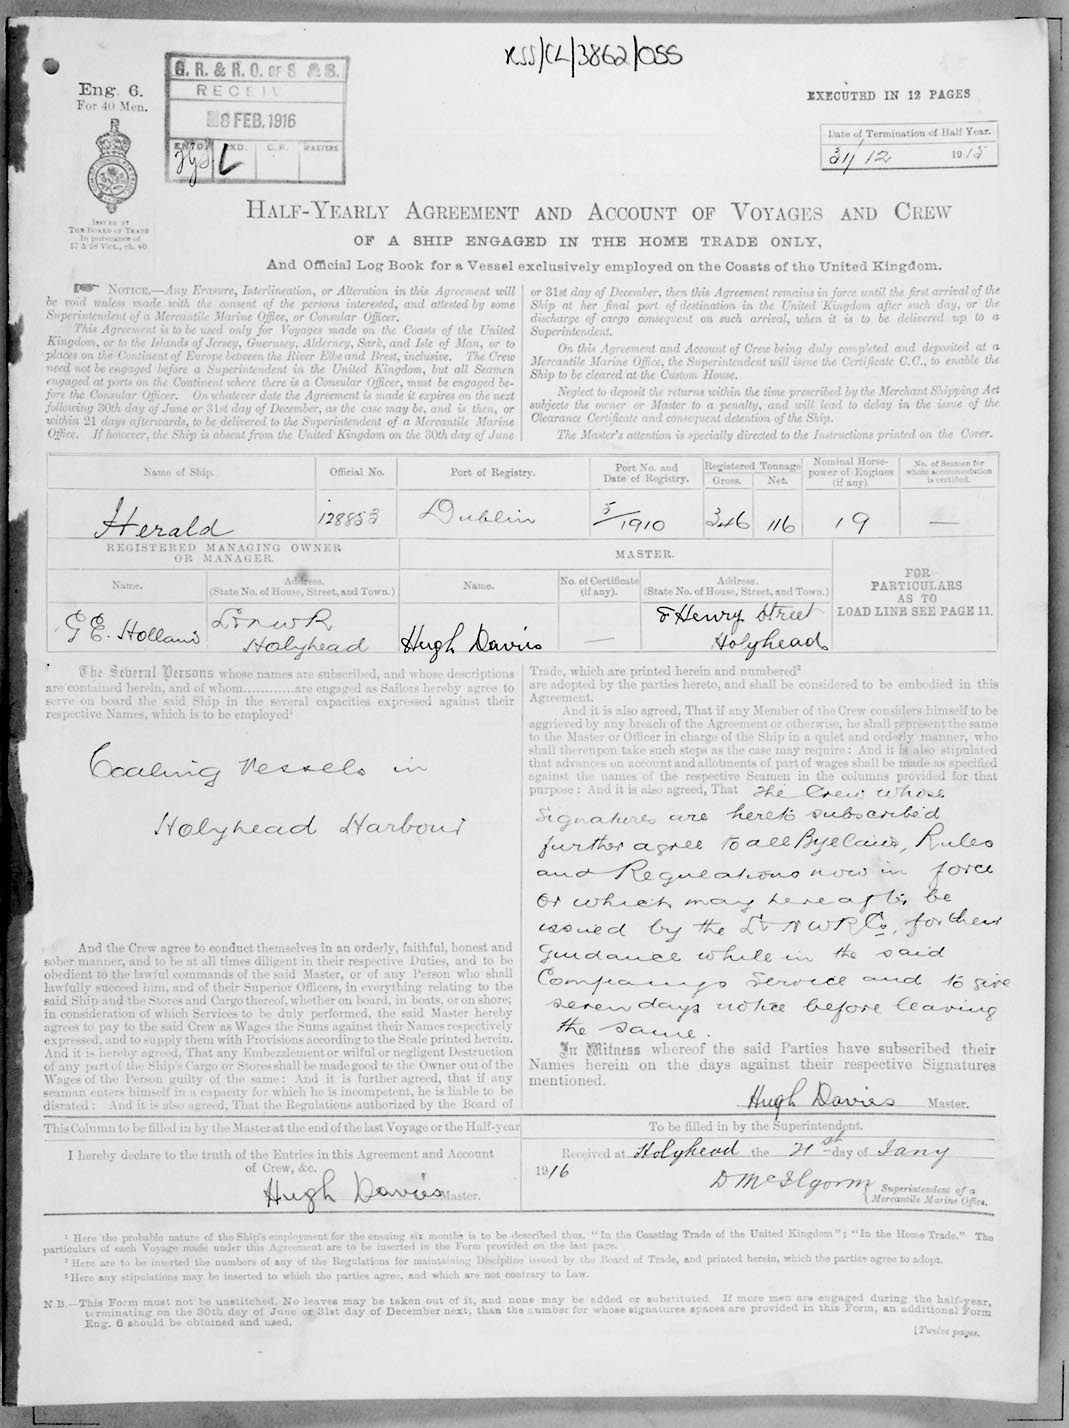 RSS/CL/3862/055
Eng. 6.
For 40 Men.
G. R. & R. O. OF S & S.
RECEIV
28 FEB. 1916
ENTD.
EXD.
C.R.
MASTERS
L
EXECUTED IN 12 PAGES
Date of Termination of Half Year.
31/12 1915
ISSUED BY
THE BOARD OF TRADE
In pursuance of
57 & 58 Vict., ch. 60.
HALF-YEARLY AGREEMENT AND ACCOUNT OF VOYAGES AND CREW
OF A SHIP ENGAGED IN THE HOME TRADE ONLY,
And Official Log Book for a Vessel exclusively employed on the Coasts of the United Kingdom.
NOTICE.—Any Erasure, Interlineation, or Alteration in this Agreement will
be void unless made with the consent of the persons interested, and attested by some
Superintendent of a Mercantile Marine Office, or Consular Officer.
This Agreement is to be used only for Voyages made on the Coasts of the United
Kingdom, or to the Islands of Jersey, Guernsey, Alderney, Sark, and Isle of Man, or to
places on the Continent of Europe between the River Elbe and Brest, inclusive. The Crew
need not be engaged before a Superintendent in the United Kingdom, but all Seamen
engaged at ports on the Continent where there is a Consular Officer, must be engaged be-
fore the Consular Officer. On whatever date the Agreement is made it expires on the next
following 30th day of June or 31st day of December, as the case may be, and is then, or
within 21 days afterwards, to be delivered to the Superintendent of a Mercantile Marine
Office. If however, the Ship is absent from the United Kingdom on the 30th day of June
or 31st day of December, then this Agreement remains in force until the first arrival of the
Ship at her final port of destination in the United Kingdom after such day, or the
discharge of cargo consequent on such arrival, when it is to be delivered up to a
Superintendent.
On this Agreement and Account of Crew being duly completed and deposited at a
Mercantile Marine Office, the Superintendent will issue the Certificate C.C., to enable the
Ship to be cleared at the Custom House.
Neglect to deposit the returns within the time prescribed by the Merchant Shipping Act
subjects the owner or Master to a penalty, and will lead to delay in the issue of the
Clearance Certificate and consequent detention of the Ship.
The Master's attention is specially directed to the Instructions printed on the Cover.
Name of Ship.
Official No.
Port of Registry.
Port No. and
Date of Registry.
Registered Tonnage
Gross.
Net.
Nominal Horse-
power of Engines
(if any).
No. of Seamen for
whom accommodation
is certified.
Herald
128853
Dublin
5/1910
346
116
19
—
REGISTERED MANAGING OWNER
OR MANAGER.
MASTER.
FOR
PARTICULARS
AS TO
LOAD LINE SEE PAGE 11.
Name.
Address.
(State No. of House, Street, and Town.)
Name.
No. of Certificate
(if any).
Address.
(State No. of House, Street, and Town.)
G E. Holland
L & N W R
Holyhead
Hugh Davies
—
Henry Street
Holyhead
The Several Persons whose names are subscribed, and whose descriptions
are contained herein, and of whom............are engaged as Sailors hereby agree to
serve on board the said Ship in the several capacities expressed against their
respective Names, which is to be employed¹
Coaling Vessels in
Holyhead Harbour
And the Crew agree to conduct themselves in an orderly, faithful, honest and
sober manner, and to be at all times diligent in their respective Duties, and to be
obedient to the lawful commands of the said Master, or of any Person who shall
lawfully succeed him, and of their Superior Officers, in everything relating to the
said Ship and the Stores and Cargo thereof, whether on board, in boats, or on shore;
in consideration of which Services to be duly performed, the said Master hereby
agrees to pay to the said Crew as Wages the Sums against their Names respectively
expressed, and to supply them with Provisions according to the Scale printed herein.
And it is hereby agreed, That any Embezzlement or wilful or negligent Destruction
of any part of the Ship's Cargo or Stores shall be made good to the Owner out of the
Wages of the Person guilty of the same: And it is further agreed, that if any
seaman enters himself in a capacity for which he is incompetent, he is liable to be
disrated: And it is also agreed, That the Regulations authorized by the Board of
Trade, which are printed herein and numbered²
are adopted by the parties hereto, and shall be considered to be embodied in this
Agreement.
And it is also agreed, That if any Member of the Crew considers himself to be
aggrieved by any breach of the Agreement or otherwise, he shall represent the same
to the Master or Officer in charge of the Ship in a quiet and orderly manner, who
shall thereupon take such steps as the case may require: And it is also stipulated
that advances on account and allotments of part of wages shall be made as specified
against the names of the respective Seamen in the columns provided for that
purpose: And it is also agreed, That the Crew whose
Signatures are hereto subscribed
further agree to all Byelaws, Rules
and Regulations now in force
or which may hereafter be
issued by the L & N W R Co, for their
guidance while in the said
Companys Service and to give
seven days notice before leaving
the same.
In Witness whereof the said Parties have subscribed their
Names herein on the days against their respective Signatures
mentioned.
Hugh Davies Master.
This Column to be filled in by the Master at the end of the last Voyage or the Half-year
To be filled in by the Superintendent.
I hereby declare to the truth of the Entries in this Agreement and Account
of Crew, &c.
Hugh Davies Master.
Received at Holyhead the 21st day of Jany
1916
D McIlgorm
Superintendent of a
Mercantile Marine Office.
¹ Here the probable nature of the Ship's employment for the ensuing six months is to be described thus, "In the Coasting Trade of the United Kingdom"; "In the Home Trade." The
particulars of each Voyage made under this Agreement are to be inserted in the Form provided on the last page.
² Here are to be inserted the numbers of any of the Regulations for maintaining Discipline issued by the Board of Trade, and printed herein, which the parties agree to adopt.
³ Here any stipulations may be inserted to which the parties agree, and which are not contrary to Law.
N.B.—This Form must not be unstitched. No leaves may be taken out of it, and none may be added or substituted. If more men are engaged during the half-year,
terminating on the 30th day of June or 31st day of December next, than the number for whose signatures spaces are provided in this Form, an additional Form
Eng. 6 should be obtained and used.
[Twelve pages.